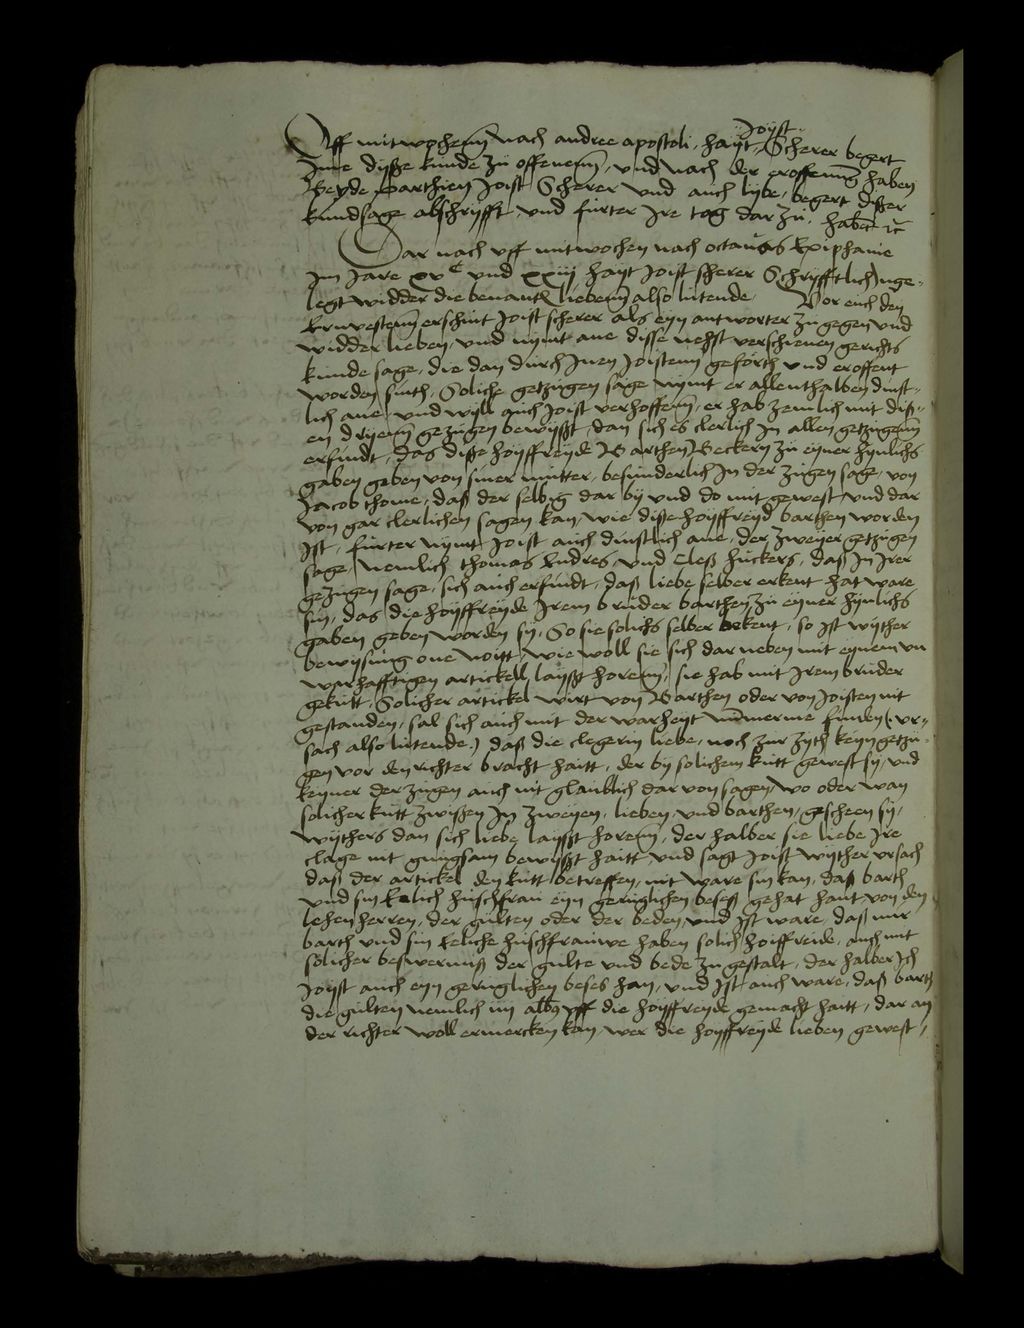 Joist
Uff mitwochenn nach andree apostoli, hayt Scherer begert
Ime dyße kunde zu offenenn, und nach der eroffenung haben
Beyde parthien Joist Scherer und auch liebe, begert dißer
kundsage abschryfft und furter Ire tag dar zu, haben etc
Dar nach uff mitwochen nach octavas Epiphanie
Im Jare xvc und xxiij hayt Joist scherer Schryfftlich Inge-
legt widder die benantl liebenn also lutende. Vor euch den
Ernvestenn erschint Joist scherer als eyn antworter zugegen und
widder lieben, und nymt ane disse nehst verschienen gerichts
kunde sage, die dan durch Inen Joistenn geforth und eroffent
worden sinth, Soliche getzugen sage nymt er allenthalben dinst-
lich ane, und wyll auch Joist verhoffenn, er hab zemlich mit diß-
en dryenn gezugen bewyßt, dan sich es clerlich In allen getzugenn
erfindt, das diße hoyffreyde Barthen Beckern zu eyner hynlichs
gaben geben von siner mutter, besunderlich In der zugen sage, von
Jacob thome, daß der selbig dar by und do mit gewest und dar
von gar clerlichen sagen kan, wie diße hoyffreyd barthen worden
Ist, furter nymt Joist auch dinstlich ane, der zweyer getzugen
sage, nemlich thomas Endres, und Cleß huckers, daß In Irer
gezugen sage, sich auch erfindt, daß liebe selber erkent hat ware
sin, das die hoyffreyde Irem bruder barthen zu eyner hynlichs
gaben geben worden sy, So sie solichs selber bekent, so Ist wyther
bewysung one noitt, wie woll sie sich dar neben mit eynem un
warhafftigen artickell layßt horenn, sie hab mit Irem bruder
gekutt, Solicher artickel wirt von Barthen oder von Joisten nit
gestanden, sal sich auch mit der warheyt nummerme finden (: ur-
sach also lutende:) daß die clegerin liebe, noch zur zyth keyn getzu-
gen vor den richter bracht haitt, der by solichem kutt gewest sy, und
keyner der zugen auch nit glaublich dar von sagen, wo oder wan
solicher kutt zwißen In zweyen, lieben, und barthen, gescheen sy,
wythers dan sich liebe layßt horenn, der halber sie liebe Ire
clage nit gnugsam bewyßt haitt und sagt Joist wyther ursach
daß der artickel den kutt betreffen, nit ware sin kan, daß barth
und sin Eelich huschfrau eyn geruglichen beseß gehat hant von den
lehen herren, der gulten oder der beden, und Ist ware, daß mir
barth und sin Eeliche huschfrauwe haben solich hoiffreide, auch mit
solicher beswerniß der gulte und bede zu gestalt, der halber Ich
Joist auch eyn geruglichen beseß han, und Ist auch ware, daß barth
die gulten nemlich iiij albus uff die hoyffreyde gemacht haitt, dar an
der richter woll ermercken kan, wer die hoyffreyde lieben gewest,